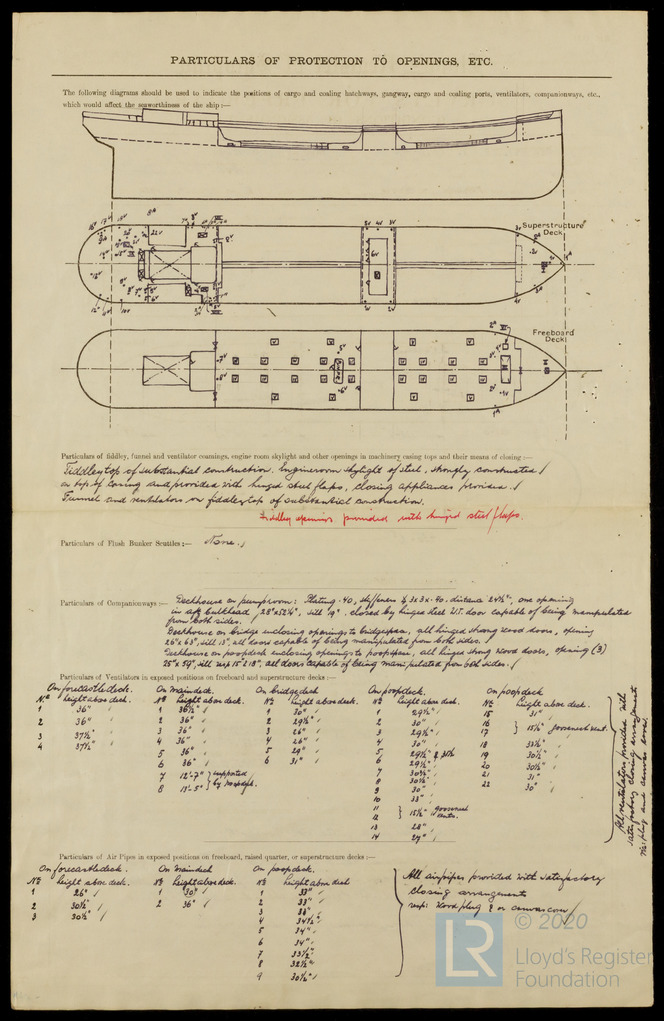 PARTICULARS OF PROTECTION TO OPENINGS, ETC.
The following diagrams should be used to indicate the positions of cargo and coaling hatchways, gangway, cargo and coaling ports, ventilators, companionways, etc.,
which would affect the seaworthiness of the ship:—
Superstructure
Deck
Freeboard
Deck
Particulars of fiddley, funnel and ventilator coamings, engine room skylight and other openings in machinery casing tops and their means of closing:—
Fiddleytop of substantial construction. Engineroom skylight of steel, strongly constructed
on top of casing and provided with hinged steel flaps, closing appliances provided.
Funnel and ventilators on fiddleytop of substantial construction.
Fiddley openings provided with hinged steel flaps.
Particulars of Flush Bunker Scuttles:— None.
Particulars of Companionways:— Deckhouse on pumproom: Plating .40, stiffeners 3x3x.40. distance 24½", one opening
in aft bulkhead, closed by hinged steel W.T. door capable of being manipulated
from both sides.
Deckhouse on bridge enclosing openings to bridgespace, all hinged strong wood doors, opening
26"x63", sill 13", all doors capable of being manipulated from both sides.
Deckhouse on poopdeck enclosing openings to poopspace, all hinged strong wood doors, opening (3)
25"x59", sill resp 15" & 18", all doors capable of being manipulated from both sides.
Particulars of Ventilators in exposed positions on freeboard and superstructure decks:—
On forecastledeck.
No. height above deck.
1 36"
2 36"
3 37½"
4 37½"
On maindeck
No. height above deck.
1 36½"
2 36"
3 36"
4 36"
5 36"
6 36"
7 12'-7" } supported
8 11'-5" } by
On bridgedeck
No. height above deck.
1 30"
2 29½"
3 26"
4 26"
5 29"
6 31"
On poopdeck.
No. height above deck.
1 29½"
2 30"
3 29½"
4 30"
5 29½"
6 29½"
7 30½"
8 30½"
9 30"
10 33"
11
12 } 15½" gooseneck vents.
13 28"
14 29"
On poopdeck
No. height above deck.
15 31"
16
17 } 15½" gooseneck vent.
18 32½"
19 30½"
20 30½"
21 31"
22 30"
All ventilators provided with
satisfactory closing arrangement
wood plug and canvas cover.
Particulars of Air Pipes in exposed positions on freeboard, raised quarter, or superstructure decks:—
On forecastledeck.
No. height above deck.
1 26"
2 30½"
3 30½"
On maindeck
No. height above deck.
1 30"
2 36"
On poopdeck.
No. height above deck
1 33"
2 33"
3 38"
4 34½"
5 34"
6 34"
7 33½"
8 32½"
9 30½"
All airpipes provided with satisfactory
closing arrangement
resp: wood plug & or canvas cover
© 2020
LR
Lloyd's Register
Foundation